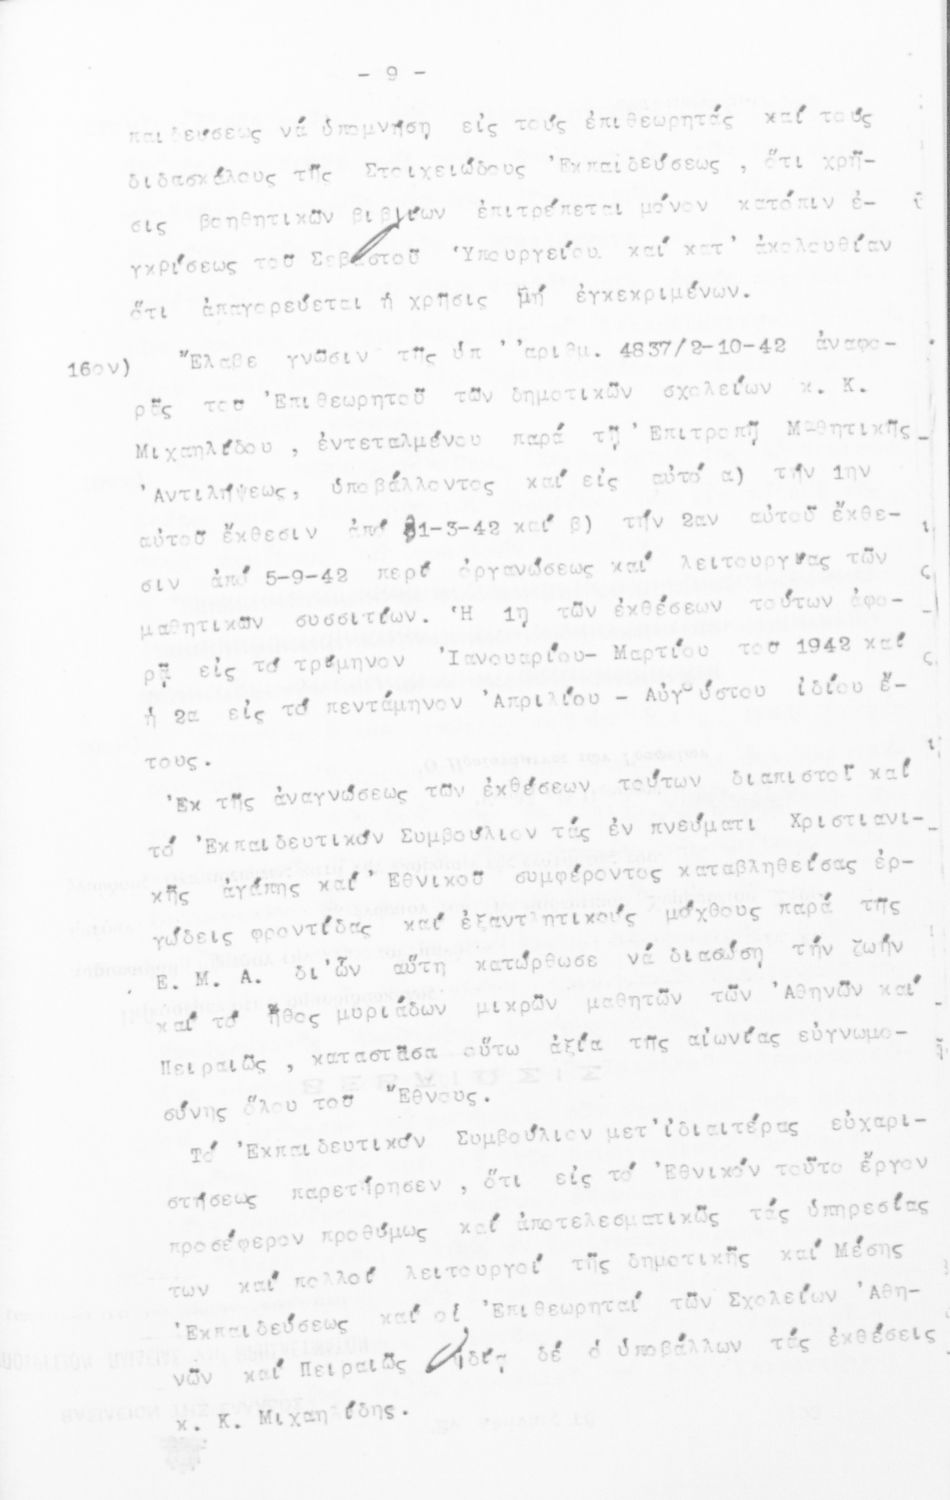 - 9 -
παιδεύσεως νά ὑπομνήσῃ εἰς τούς ἐπιθεωρητάς καί τούς
διδασκάλους τῆς Στοιχειώδους Ἐκπαιδεύσεως , ὅτι χρῆ-
σις βοηθητικῶν βιβλίων ἐπιτρέπεται μόνον κατόπιν ἐ-
γκρίσεως τοῦ Σεβαστοῦ Ὑπουργείου καί κατ' ἀκολουθίαν
ὅτι ἀπαγορεύεται ἡ χρῆσις μή ἐγκεκριμένων.
16ον) Ἔλαβε γνῶσιν τῆς ὑπ' 'αριθμ. 4837/2-10-42 ἀναφο-
ρᾶς τοῦ Ἐπιθεωρητοῦ τῶν δημοτικῶν σχολείων κ. Κ.
Μιχαηλίδου , ἐντεταλμένου παρά τῇ Ἐπιτροπῇ Μαθητικῆς
Ἀντιλήψεως, ὑποβάλλοντος καί εἰς αὐτό α) τήν 1ην
αὐτοῦ ἔκθεσιν ἀπό 31-3-42 καί β) τήν 2αν αὐτοῦ ἔκθε-
σιν ἀπό 5-9-42 περί ὀργανώσεως καί λειτουργίας τῶν
μαθητικῶν συσσιτίων. Ἡ 1η τῶν ἐκθέσεων τούτων ἀφο-
ρᾷ εἰς τό τρίμηνον Ἰανουαρίου- Μαρτίου τοῦ 1942 καί
ἡ 2α εἰς τό πεντάμηνον Ἀπριλίου - Αὐγούστου ἰδίου ἔ-
τους.
Ἐκ τῆς ἀναγνώσεως τῶν ἐκθέσεων τούτων διαπιστοῖ καί
τό Ἐκπαιδευτικόν Συμβούλιον τάς ἐν πνεύματι Χριστιανι-
κῆς ἀγάπης καί Ἐθνικοῦ συμφέροντος καταβληθείσας ἐρ-
γώδεις φροντίδας καί ἐξαντλητικούς μόχθους παρά τῆς
Ε. Μ. Α. δι,ὧν αὕτη κατώρθωσε νά διασώσῃ τήν ζωήν
καί τό ἦθος μυριάδων μικρῶν μαθητῶν τῶν Ἀθηνῶν καί
Πειραιῶς , καταστᾶσα οὕτω ἀξία τῆς αἰωνίας εὐγνωμο-
σύνης ὅλου τοῦ Ἔθνους.
Τό Ἐκπαιδευτικόν Συμβούλιον μετ'ἰδιαιτέρας εὐχαρι-
στήσεως παρετήρησεν , ὅτι εἰς τό Ἐθνικόν τοῦτο ἔργον
προσέφερον προθύμως καί ἀποτελεσματικῶς τάς ὑπηρεσίας
των καί πολλοί λειτουργοί τῆς δημοτικῆς καί Μέσης
Ἐκπαιδεύσεως καί οἱ Ἐπιθεωρηταί τῶν Σχολείων Ἀθη-
νῶν καί Πειραιῶς ἰδίᾳ δέ ὁ ὑποβάλλων τάς ἐκθέσεις
κ. Κ. Μιχαηλίδης.